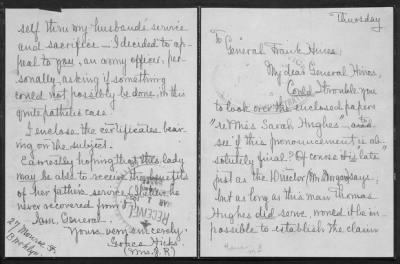 Thursday
To
General Frank Hines,
My dear General Hines,
Could I trouble you
to look over the enclosed papers
"re Miss Sarah Hughes" — and
see if this pronouncement is ab-
solutely final? Of course it is late
just as the Director Mr. Morgan says,
but as long as this man Thomas
Hughes did serve, would it be im-
possible to establish the claim
self thru my husband's service
and sacrifice — I decided to ap-
peal to you, an army officer, per-
sonally, asking if something
could not possibly be done, in this
quite pathetic case.
I enclose the certificates bear-
ing on the subject.
Earnestly hoping that this lady
may be able to receive the benefits
of her father's service (which he
never recovered from)
I am General
Yours very sincerely,
Hicks
(Mrs. J. R)
27 Monroe St.
Brooklyn
RECEIVED